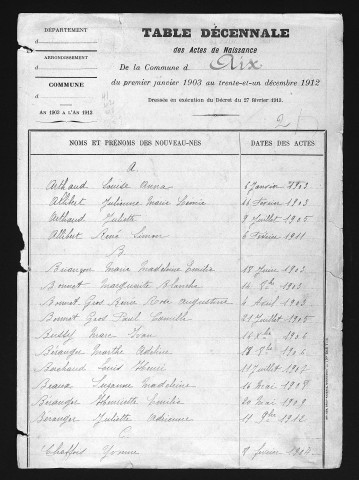 DÉPARTEMENT
d
ARRONDISSEMENT
d
COMMUNE
d
AN 1903 A L'AN 1912
TABLE DÉCENNALE
des Actes de Naissance
De la Commune d Aix
du premier janvier 1903 au trente-et-un décembre 1912
Dressée en exécution du Décret du 27 février 1912.
NOMS ET PRÉNOMS DES NOUVEAU-NÉS DATES DES ACTES
A
Arthaud Louise Anna 6 Janvier 1903
Allibert Julienne Marie 14 Février 1903
Arthaud Juliette 9 Juillet 1905
Allibert René Simon 6 Février 1911
B
Marie Madeleine Emilie 18 Juin 1903
Bonnat Marguerite Blanche 1903
Bonnat Gros Marie Rose Augustine 6 Avril 1903
Bonnat Gros Paul Camille 21 Juillet 1905
Bussy Marc Ivan 1906
Beranger Marthe Adeline 1906
Louis Henri Juillet
Suzanne Madeleine 16 Mai 1908
Beranger Henriette Emilie 20 Mai 1909
Beranger Juliette Adrienne 11 9bre 1912
C
Yvonne 8 février 1904